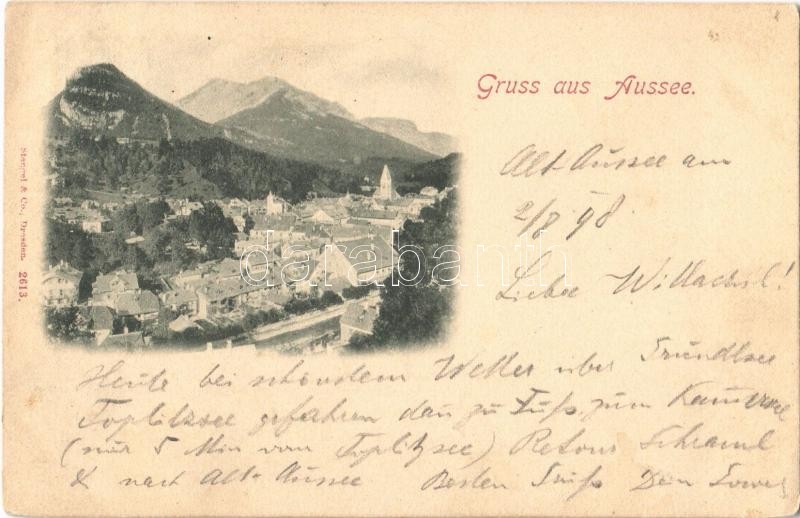 Gruss aus Aussee.
Alt-Aussee am
2/8 98
Stengel & Co., Dresden. 2613.
darabanth
Lieber
Heute bei schönstem Wetter über Grundlsee
Toplitzsee gefahren dan zu Fuß zum Kammersee
(nur 5 Min vom Toplitzsee) Retour
& nach Alt-Aussee Besten Gruß Dein